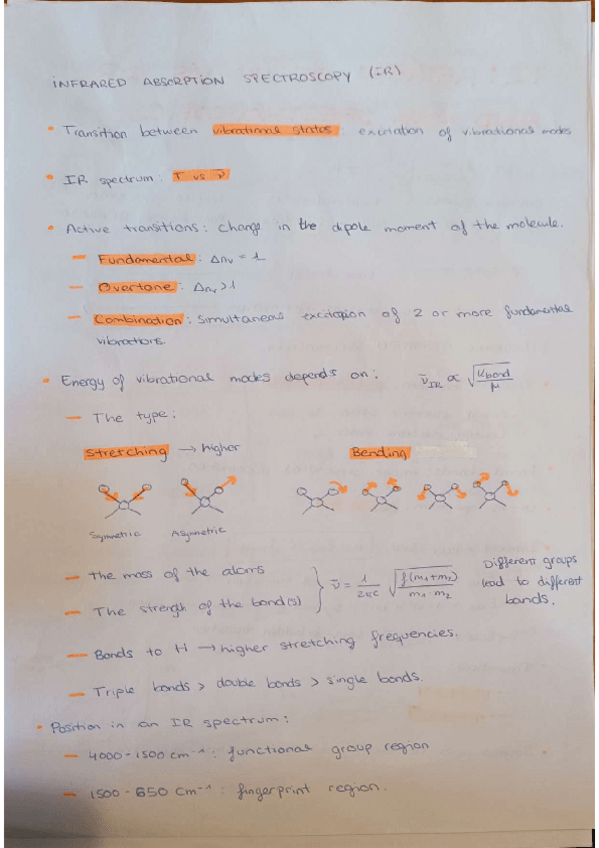 INFRARED ABSORPTION SPECTROSCOPY (IR)
• Transition between vibrational states, excitation of vibrational modes
• IR spectrum: T vs ν̄
• Active transitions: change in the dipole moment of the molecule.
– Fundamental: Δnᵥ = 1
– Overtone: Δnᵥ > 1
– Combination: simultaneous excitation of 2 or more fundamental
vibrations.
• Energy of vibrational modes depends on: ν̄IR ∝ √(kbond/μ)
– The type:
Stretching → higher Bending
Symmetric Asymmetric
– The mass of the atoms
– The strength of the bond(s)
} ν̄ = 1/2πc √(f(m₁+m₂)/m₁·m₂)
Different groups
lead to different
bands.
– Bonds to H → higher stretching frequencies.
– Triple bonds > double bonds > single bonds.
• Position in an IR spectrum:
– 4000-1500 cm⁻¹: functional group region
– 1500-650 cm⁻¹: fingerprint region.